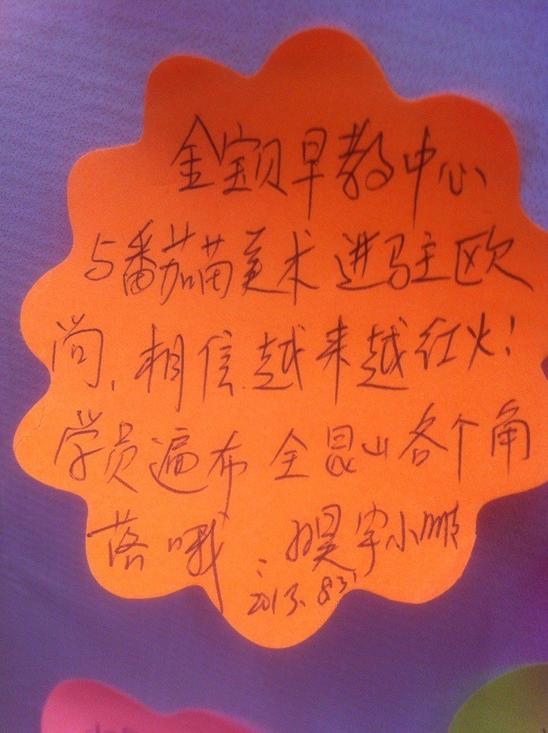 金宝贝早教中心
与番茄苗美术进驻欧
尚,相信越来越红火!
学员遍布全昆山各个角
落哦:
小
2013.8.31